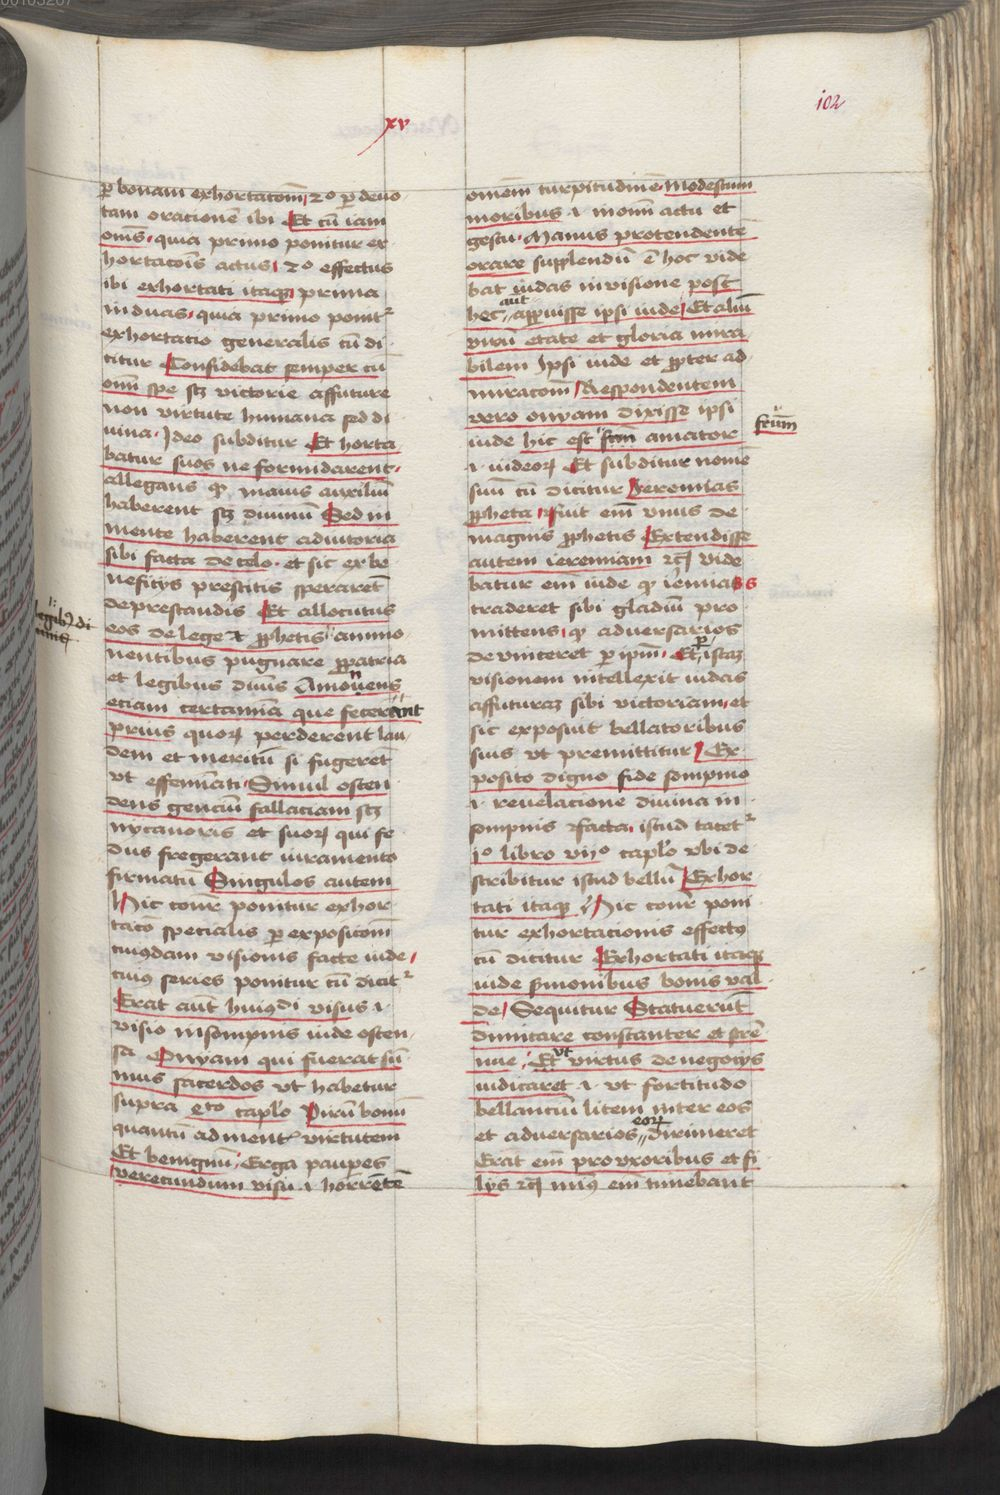 00103207
102
xv
ꝑ bonam exhortatoēm, 2º ꝑ deuo
tam oracionē ibi Et cū iam
om̄s. quia primo ponitur ex
hortacōis actus, 2º effectus
ibi exhortati itaqꝫ prima
in duas, quia primo ponitr
exhortatio generalis cū di
citur Considebat semper cū
om̄i spe scꝫ victorie affuture
non virtute humana sed di
uina. Ideo subditur Et horta
batur suos ne formidarent.
allegans qꝫ maius auxiliū
haberent scꝫ diuinū Sed in
mente haberent adiutoria
sibi facta de celo. et sic ex be
neficijs prestitis sperarēt
de prestandis Et allocutus
legibꝫ di
uinis
eos de lege et ꝓphetis ammo
nentibus pugnare ꝓ patria
et legibus diuīs Amonens
eciam certamina que fecerant
prius quoꝝ perderent lau
dem et meritū si fugerēt
vt effemīati. Simul osten
dens genciū fallaciam scꝫ
nycanoris et suoꝝ qui fe
dus fregerant iuramento
firmatū Singulos autem
Hic cōnr̄ ponitur exhor
tacō specialis ꝑ exposicoēm
cuiusdam visionis facte iude,
cuius series ponitur cū dicitr
Erat aūt huiusdi visus .i.
visio in sompnis iude osten
sa Onyam qui fuerat sū
mus sacerdos vt habetur
supra eto capło Virū bonū
quantū ad mentē virtutem
Et benignū, Erga pauꝑes
verecundum visu .i. horrētē
omnēm turpitudinē. Modestum
moribus .i. in om̄i actu et
gestu. Manus protendentē
orare supplendū ē hoc vide
bat iudas in visione post
hec aut apparuisse ipsi iude, Et aliū
virū etate et gloria mira
bilem Ipsi iude et ꝓpter ad
miracoēm, Respondentem
vero onyam dixisse ipsi
iude hic est frm̄ amator
fr̄um
.i. iudeoꝝ Et subditur nomē
suū cū dicitur Jeremias
ꝓpheta, Fuit em̄ vnus de
magnis ꝓphetis Extendisse
autem ieremiam rc̄ꝫ vide
batur em̄ iude qꝫ ieremias
traderet sibi gladiū pro
mittens, qꝫ aduersarios
deuinceret ꝑ ipm̄. Et per istaꝫ
visionem intellexit iudas
affuturaꝫ sibi victoriam, et
sic exposuit bellatoribus
suis vt premittitur, Ex
posito digno fide sompnio
.i. reuelacione diuina in
sompnis facta, istud tacetr
1º libro vijº capło vbi de
scribitur istud bellū Exhor
tati itaqꝫ Hic cōnr̄ poni
tur exhortacionis effectus
cū dicitur Exhortati itaqꝫ
iude sermonibus bonis val
de, Sequitur Statuerūt
dimicare constanter et stre
nue, Et vt virtus de negocijs
iudicaret .i. vt fortitudo
bellanciū litem inter eos
et aduersarios eoꝝ dirimeret
Erat em̄ pro vxoribus et fi
lijs rc̄ꝫ minus em̄ timebant